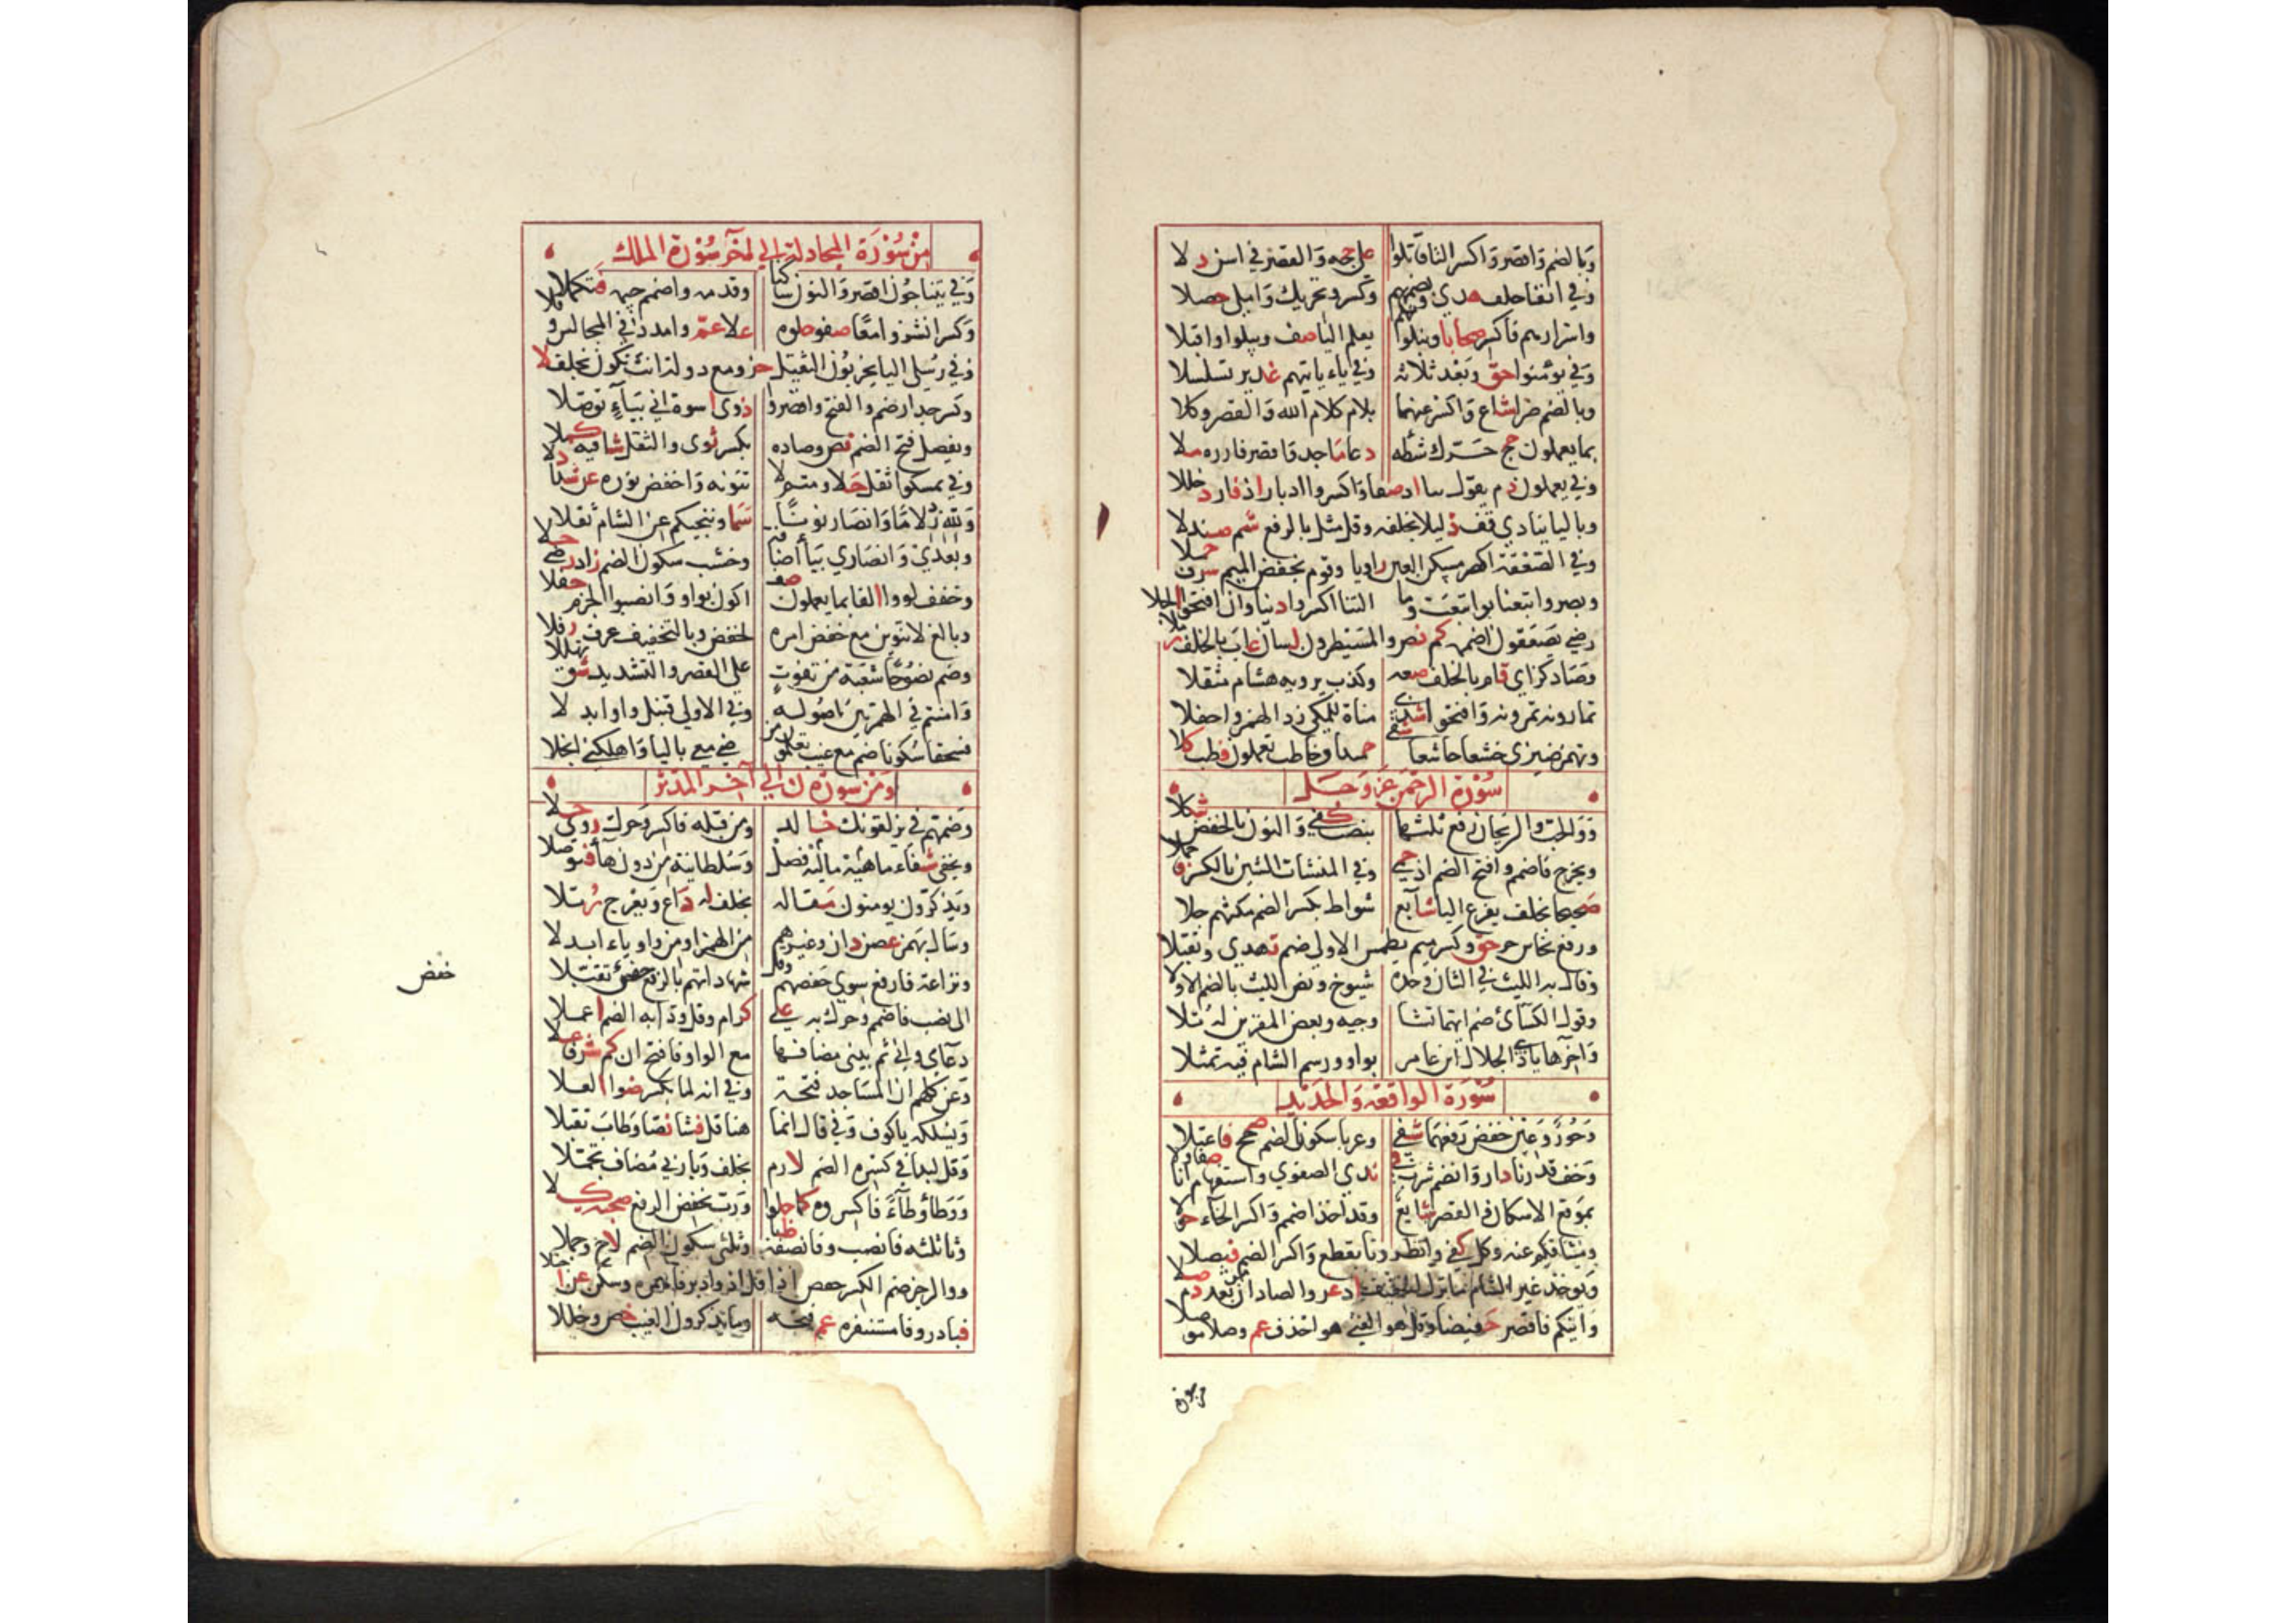 وبالضم واقصر واكسر التا قاتلوا على حجه والقصر في اسن دلا
وفي انفا خلف هدى وبضمهم وكسر وتحريك واملي حصلا
واسرارهم فاكسر صحابا ونبلوا يعلم اليا صف ويبلوا واقبلا
وفي يؤمنوا حق وبعد ثلاثة وفي ياء ياتيهم غدير تسلسلا
وبالضم ضرا شاع واكسر عنهما بلام كلام الله والقصر وكلا
بما يعملون حج حرك شطه دعا ماجد واقصر فازره ملا
وفي يعملون دم يقول بيا اذ صفا واكسروا ادبار اذ فاز دخللا
وباليا ينادي قف دليلا بخلفه وقل مثل بالرفع شمم صندلا
وفي الصعقة اقصر مسكن العين راويا وقوم بخفض الميم شرف حملا
وبصر واتبعنا بواتبعت وما التنا اكسروا دنيا وان افتحوا الجلا
رضى يصعقون اضممه كم نص والمسيطرون لسان عاب بالخلف زملا
وصاد كزاي قام بالخلف ضبعه وكذب يرويه هشام مثقلا
تمارونه تمرونه وافتحوا شذى مناة للمكي زد الهمز واحفلا
ويهمز ضيزى خشعا خاشعا شفى حميدا وخاطب تعملون فطب كلا
سورة الرحمن عز وجل
ووالحب والريحان رفع ثلثها بنصب كفى والنون بالخفض شكلا
ويخرج فاضمم وافتح الضم اذ حمى وفي المنشات الشين بالكسر فاحملا
صحيحا بخلف يفرغ اليا شايع شواظ بكسر الضم مكيهم جلا
ورفع نحاس جر حق وكسر ميم يطمس الاولى ضم تهدى وتقبلا
وقال به لليث في الثان وحده شيوخ ونص الليث بالضم الاولا
وقول الكسائي ضم ايهما تشا وجيه وبعض المقرئين له تلا
واخرها ياذي الجلال ابن عامر بواو ورسم الشام فيه تمثلا
سورة الواقعة والحديد
وحور وعين خفض رفعهما شفى وعربا سكون الضم صحح فاعتلا
وخف قدرنا دار وانضم شرب في ندى الصفو واستفهام انا صفا ولا
بموقع الاسكان والقصر شايع وقد اخذ اضمم واكسر الخاء حولا
وميثاقكم عنه وكل كفى وانظرونا بقطع واكسر الضم فيصلا
ويوخذ غير الشام ما نزل الخفيف اذ عز والصادان من بعد دم صلا
واتيكم فاقصر حفيظا وقل هو الغني هو احذف عم وصلا موصلا
من سورة المجادلة الى اخر سورة الملك
وفي يتناجون اقصر والنون ساكنا وقدمه واضمم جيمه فتكملا
وكسر انشزوا معا صفو خلوه علا عم وامدد في المجالس نوفلا
وفي رسلي اليا يخربون الثقيل حز ومع دولة انث تكون بخلف لا
وكسر جدار ضم والفتح واقصروا ذوي اسوة اني بياء توصلا
ويفصل فتح الضم نص وصاده بكسر ثوى والثقل شافيه كملا
وفي تمسكوا ثقل حلا ومتم لا تنونه واخفض نوره عن شذا دلا
ولله زد لاما وانصار نونا سما وتنجيكم عن الشام ثقلا
وبعدي وانصاري بياء اضافة وخشب سكون الضم زاد رضى حلا
وخفف لووا الفا بما يعملون صف اكون بواو وانصبوا الجزم حفلا
وبالغ لا تنوين مع خفض امره لحفص وبالتخفيف عرف رفلا
وضم نصوحا شعبة من تفوت على القصر والتشديد شق تهللا
وامنتم في الهمزتين اصوله وفي الاولى قنبل واوا ابدلا
فسحقا سكونا ضم مع غيب تعلمون من رض معي باليا واهلكني انجلا
ومن سورة ن الى اخر المدثر
وضمهم في يزلقونك خالد ومن قبله فاكسر وحرك روى حلا
ويخفى شفاء ماهيه ماليه فصل وسلطانيه من دون هاء فتوصلا
ويذكرون يومنون مقاله بخلف له داع ويعرج رتلا
وسال بهمز غصن دان وغيرهم من الهمز او من واو او ياء ابدلا
ونزاعة فارفع سوى حفصهم وقل شهاداتهم بالجمع حفص تقبلا
الى نصب فاضمم وحرك به على كرام وقل ودا به الضم اعملا
دعائي واني ثم بيتي مضافها مع الواو فافتح ان كم شرفا علا
وعن كلهم ان المساجد فتحه وفي انه لما بكسر ضوا العلا
ويسلكه يا كوف وفي قال انما هنا قل فشا نصا وطاب تقبلا
وقل لبدا في كسره الضم لازم بخلف ويا ربي مضاف تجملا
ووطأ وطاء فاكسروه كما حكوا ورب بخفض الرفع صحبته كلا
وثا ثلثه فانصب وفا نصفه ظبا وثلثي سكون الضم لاح وجملا
ووالرجز ضم الكسر حفص اذا قل اذ وادبر فاهمزه وسكن عن اجتلا
فبادر وفا مستنفره عم فتحه وما تذكرون الغيب خص وخللا
خفض